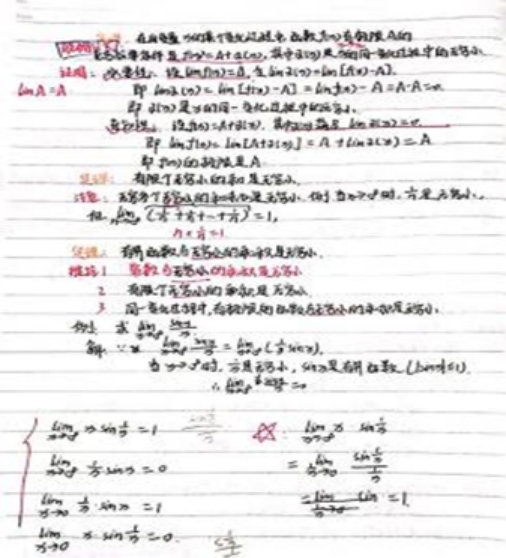 在自变量x的某个变化过程中,函数f(x)有极限A的
充要条件是f(x)=A+α(x),其中α(x)是x的同一变化过程中的无穷小.
证明: 必要性: 设limf(x)=A, 令α(x)=[f(x)-A].
limA=A
即 limα(x)=lim[f(x)-A]=limf(x)-A=A-A=0
即α(x)是x的同一变化过程中的无穷小.
充分性: 设f(x)=A+α(x), limα(x)=0
即limf(x)=lim[A+α(x)]=A+limα(x)=A
即f(x)的极限是A.
定理: 有限个无穷小的和是无穷小.
注意: 无穷多个无穷小的和未必是无穷小. 例: 当n→∞时, 1/n是无穷小,
但 lim(1/n+1/n+…+1/n)=1,
n×1/n=1
定理: 有界函数与无穷小的乘积是无穷小.
推论1 常数与无穷小的乘积是无穷小
2 有限个无穷小的乘积是无穷小
3 同一变化过程中,有极限的函数与无穷小的乘积是无穷小.
例: 求 lim x→∞ sinx/x
解: ∵ lim x→∞ sinx/x = lim x→∞ (1/x sinx).
当x→∞时, 1/x是无穷小, sinx是有界函数 (|sinx|≤1).
∴ lim x→∞ sinx/x =0
lim x→∞ x sin1/x =1
☆: lim x→∞ x·sin1/x
lim x→∞ 1/x·sinx=0
= lim x→∞ sin1/x / 1/x
lim x→0 1/x·sinx=1
=1
lim x→0 x·sin1/x=0.